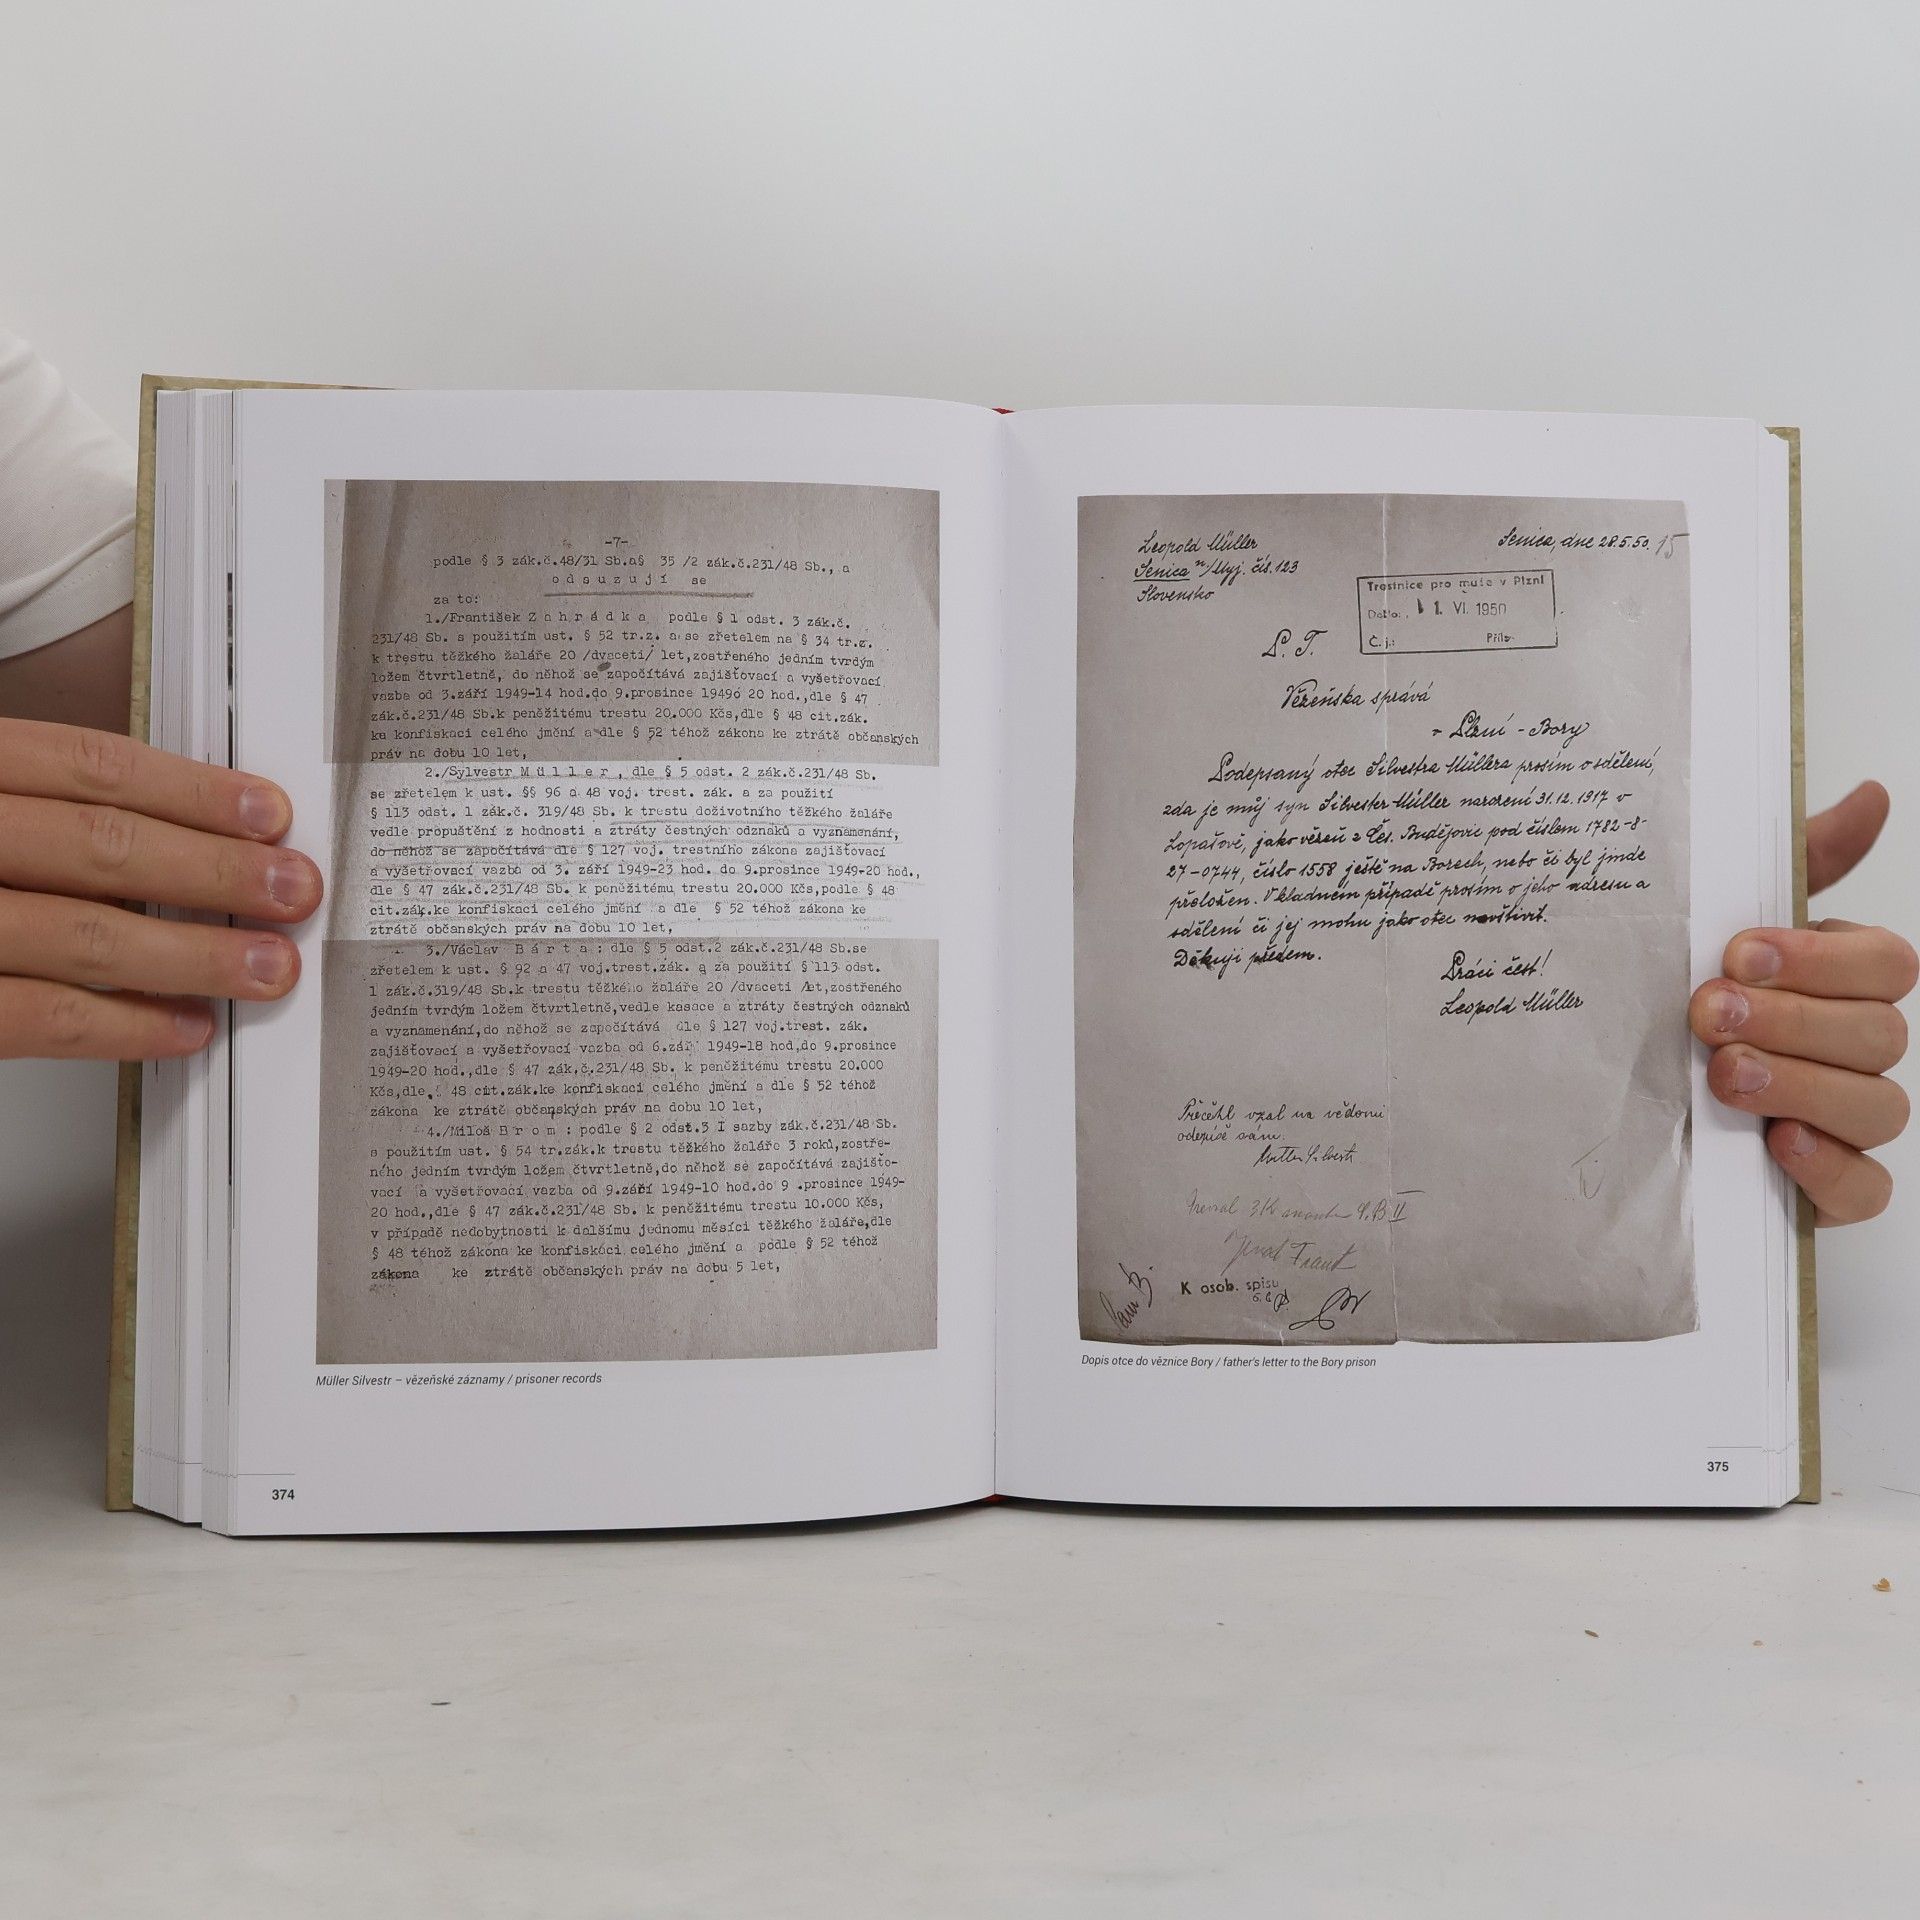 -7-
podle § 3 zák.č.48/31 Sb.a§ 35 /2 zák.č.231/48 Sb., a
o d s u z u j í se
za to:
1./František Z a h r á d k a podle § 1 odst. 3 zák.č.
231/48 Sb. s použitím ust. § 52 tr.z. a se zřetelem na § 34 tr.z.
k trestu těžkého žaláře 20 /dvaceti/ let,zostřeného jedním tvrdým
ložem čtvrtletně, do něhož se započítává zajišťovací a vyšetřovací
vazba od 3.září 1949-14 hod.do 9.prosince 1949ó 20 hod.,dle § 47
zák.č.231/48 Sb.k peněžitému trestu 20.000 Kčs,dle § 48 cit.zák.
ke konfiskaci celého jmění a dle § 52 téhož zákona ke ztrátě občanských
práv na dobu 10 let,
2./Sylvestr M ü l l e r , dle § 5 odst. 2 zák.č.231/48 Sb.
se zřetelem k ust. §§ 96 a 48 voj. trest. zák. a za použití
§ 113 odst. 1 zák.č. 319/48 Sb. k trestu doživotního těžkého žaláře
vedle propuštění z hodnosti a ztráty čestných odznaků a vyznamenání,
do něhož se započítává dle § 127 voj. trestního zákona zajišťovací
a vyšetřovací vazba od 3. září 1949-23 hod. do 9.prosince 1949-20 hod.,
dle § 47 zák.č.231/48 Sb. k peněžitému trestu 20.000 Kčs,podle § 48
cit.zák.ke konfiskaci celého jmění a dle § 52 téhož zákona ke
ztrátě občanských práv na dobu 10 let,
3./Václav B á r t a : dle § 5 odst.2 zák.č.231/48 Sb.se
zřetelem k ust. § 92 a 47 voj.trest.zák. a za použití § 113 odst.
1 zák.č.319/48 Sb.k trestu těžkého žaláře 20 /dvaceti /let,zostřeného
jedním tvrdým ložem čtvrtletně,vedle kasace a ztráty čestných odznaků
a vyznamenání,do něhož se započítává dle § 127 voj.trest. zák.
zajišťovací a vyšetřovací vazba od 6.září 1949-18 hod,do 9.prosince
1949-20 hod.,dle § 47 zák.č.231/48 Sb. k peněžitému trestu 20.000
Kčs,dle § 48 cit.zák.ke konfiskaci celého jmění a dle § 52 téhož
zákona ke ztrátě občanských práv na dobu 10 let,
4./Miloš B r o m : podle § 2 odst.3 I sazby zák.č.231/48 Sb.
s použitím ust. § 54 tr.zák.k trestu těžkého žaláře 3 roků,zostře-
ného jedním tvrdým ložem čtvrtletně,do něhož se započítává zajišťo-
vací a vyšetřovací vazba od 9.září 1949-10 hod.do 9 .prosince 1949-
20 hod.,dle § 47 zák.č.231/48 Sb. k peněžitému trestu 10.000 Kčs,
v případě nedobytnosti k dalšímu jednomu měsíci těžkého žaláře,dle
§ 48 téhož zákona ke konfiskaci celého jmění a podle § 52 téhož
zákona ke ztrátě občanských práv na dobu 5 let,
Müller Silvestr – vězeňské záznamy / prisoner records
374
Leopold Müller
Senica n/Myj. čís.123
Slovensko
Senica, dne 28.5.50. 15
Trestnice pro muže v Plzni
Došlo: 1. VI. 1950
Č. j.: Příl.
P. T.
Vězeńska správá
v Plzni - Bory
Podepsaný otec Silvestra Müllera prosím o sdělení,
zda je můj syn Silvester Müller narození 31.12.1917 v
Lopašově, jako vězeň z Čes. Budějovic pod číslem 1782-8-
27-0744, číslo 1558 ještě na Borech, nebo či byl jinde
přeložen. V kladném případě prosím o jeho adresu a
sdělení či jej mohu jako otec navštívit.
Děkuji předem.
Práci čest!
Leopold Müller
Přečetl vzal na vědomí
odepíše sám.
K osob. spisu
Dopis otce do věznice Bory / father's letter to the Bory prison
375